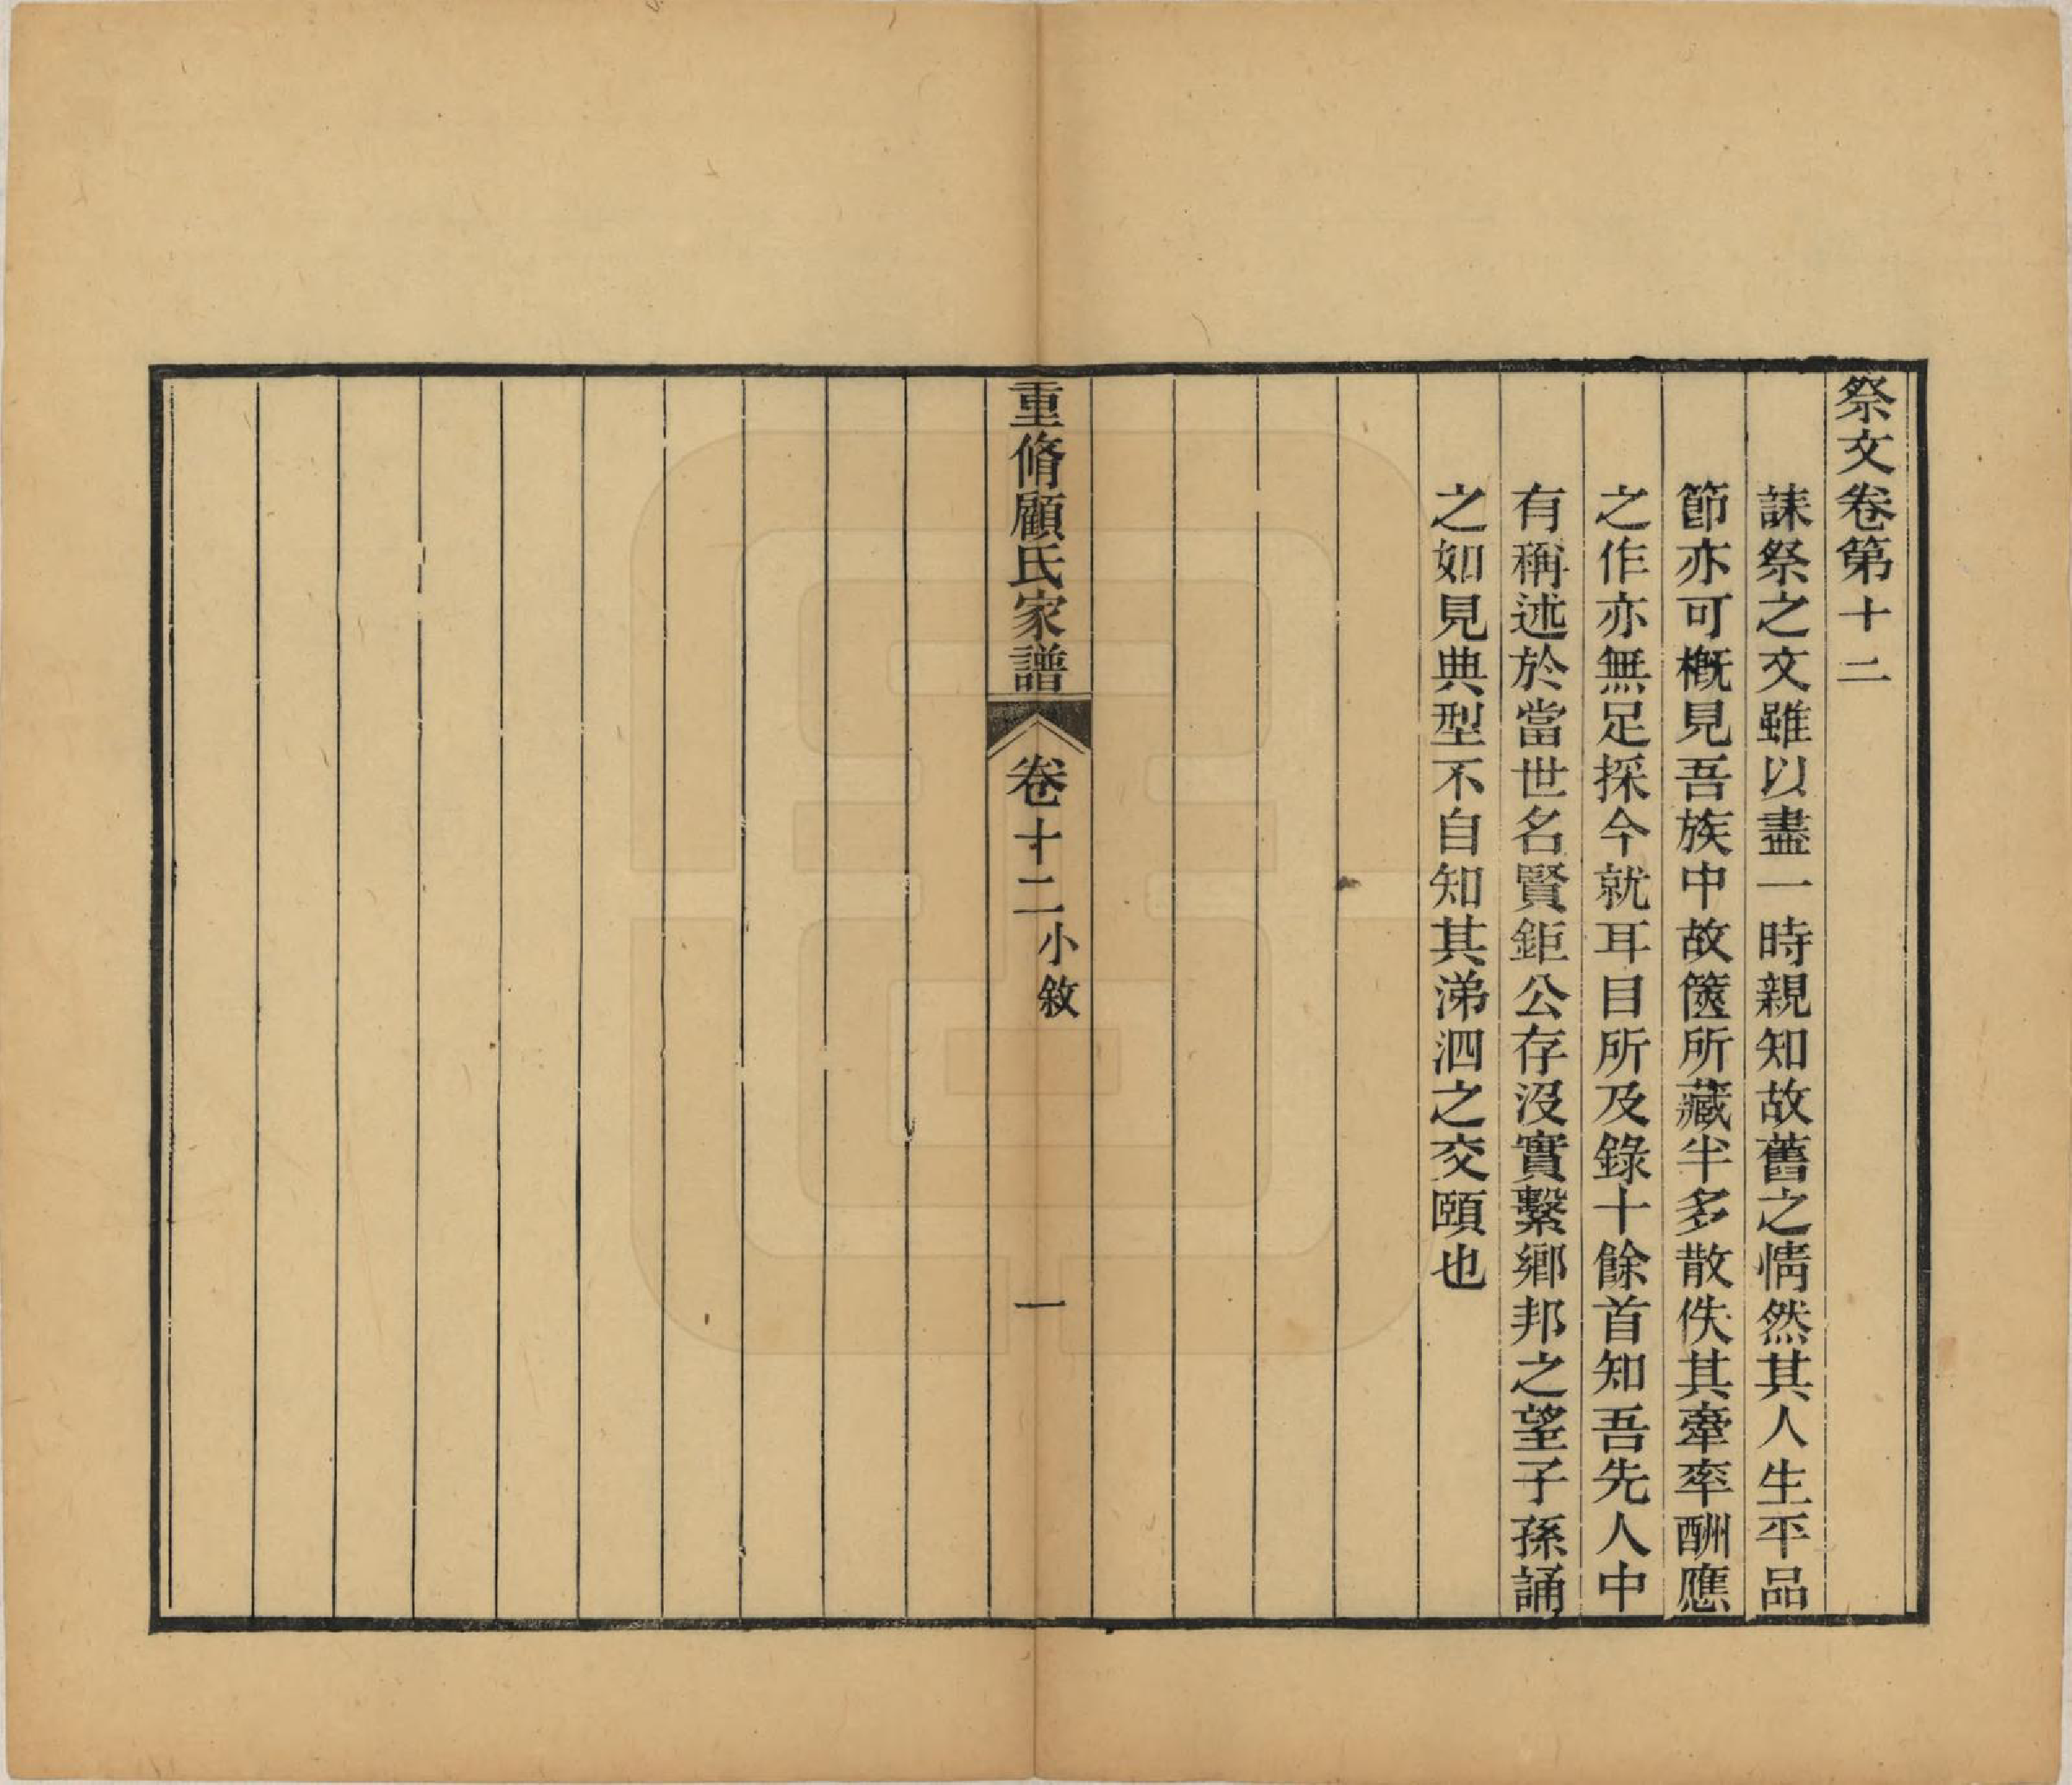 祭文卷第十二
誄祭之文雖以盡一時親知故舊之情然其人生平品
節亦可槪見吾族中故篋所藏半多散佚其牽率酬應
之作亦無足採今就耳目所及錄十餘首知吾先人中
有稱述於當世名賢鉅公存沒實繫鄉邦之望子孫誦
之如見典型不自知其涕泗之交頤也
重脩顧氏家譜
卷十二
小敘
一